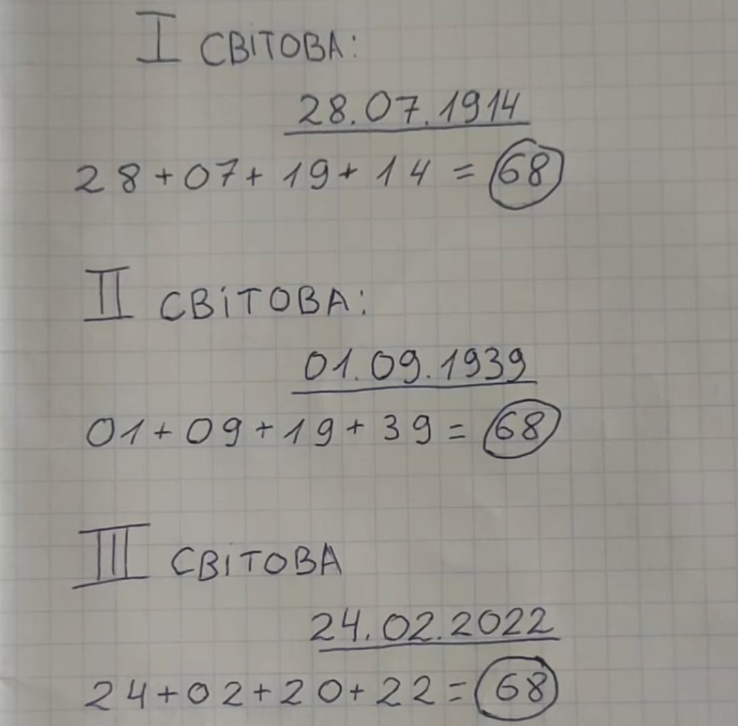 I СВІТОВА:
28.07.1914
28+07+19+14 = 68
II СВІТОВА:
01.09.1939
01+09+19+39 = 68
III СВІТОВА
24.02.2022
24+02+20+22 = 68